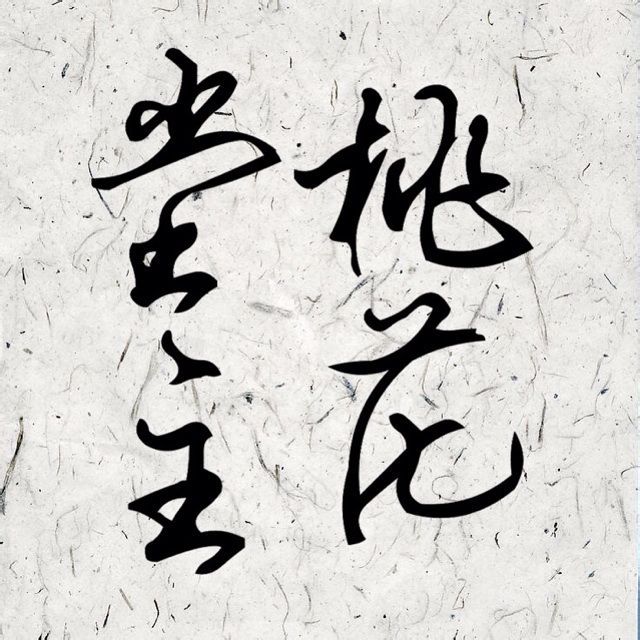 桃花
堂主